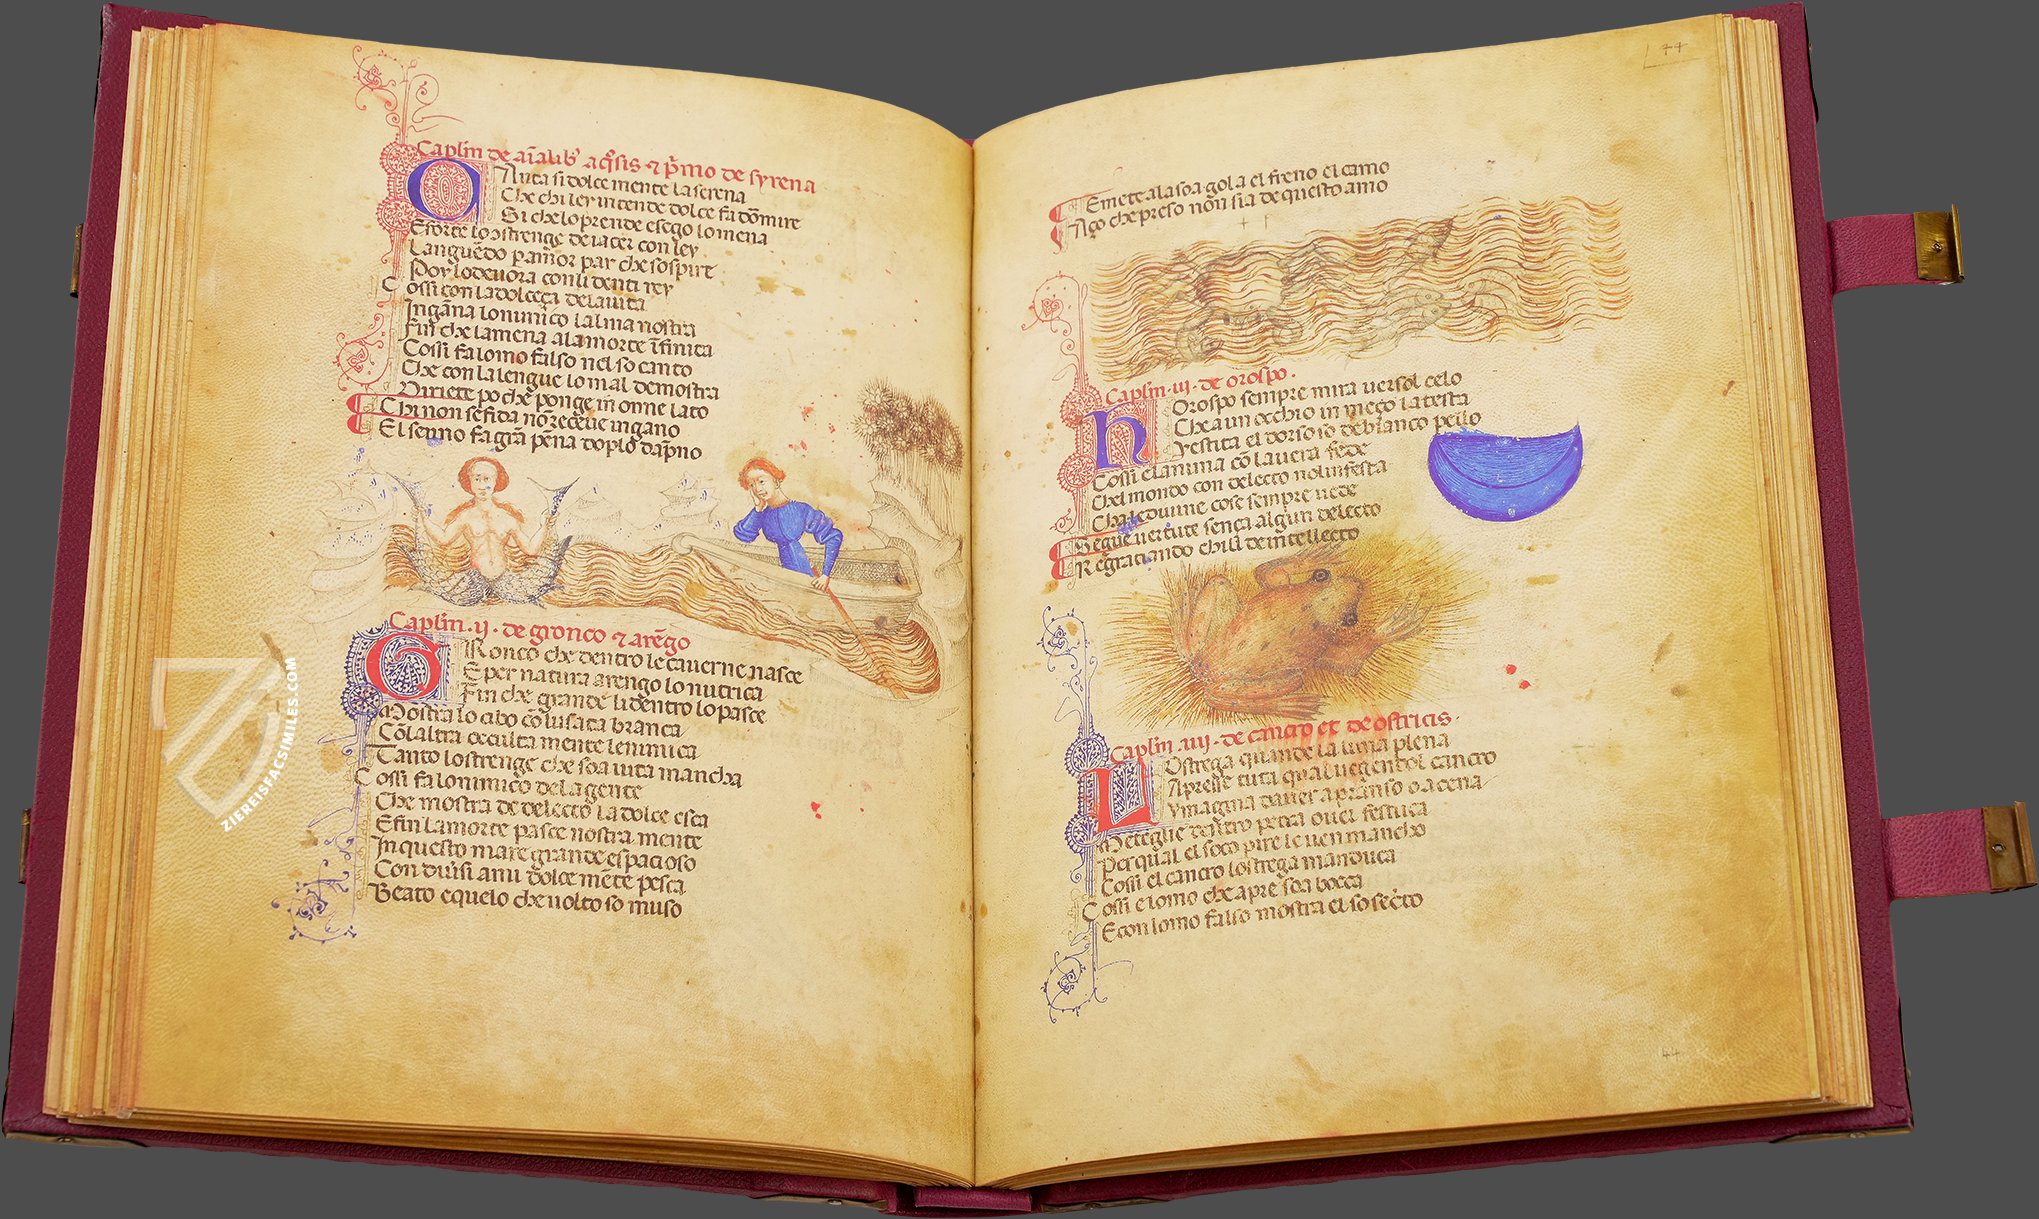 Caplm de aĩalibꝰ aq̃sis ⁊ p̃mo de syrena
CAnta si dolce mente la serena
Che chi ley intende dolce fa dõmire
Si che lo prende e sego lo mena
E forte lo strenge de iacer con ley
Languẽdo p amor par che sospire
Poy lo deuora con li denti rey
Cossi con la dolceça dela uita
Ingãna lo nimico lalma nostra
Fin che la mena ala morte ĩfinita
Cossi fa lomo falso nel so canto
Che con la lengue lo mal demostra
Diriete po che ponge in onne lato
Chi non se fida nõ receue ingano
El senno fa grã pena dopló dãpno
Caplm .ij. de gronco ⁊ arẽgo
GRonco che dentro le cauerne nasce
E per natura arengo lo nutrica
Fin che grande li dentro lo pasce
Mostra lo cibo cõ lusata branca
Cõ laltra occulta mente lenimica
Tanto lo strenge che soa uita mancha
Cossi fa lo nimico dela gente
Che mostra de delecto la dolce esca
E fin la morte pasce nostra mente
In questo mare grande e spacioso
Con diuisi ami dolce mẽte pesca
Beato e quelo che uolto so muso
44
E mete ala soa gola el freno el camo
Aço che preso non sia de questo amo
Caplm .iij. de orospo.
NOrospo sempre mira uersol celo
Che a un occhio in meço la testa
Vestita el dorso so de bianco pello
Cossi el anima cõ la uera fede
Chel mondo con delecto nol infesta
Cha le diuine cose sempre uede
Segue uertute sença algun delecto
Regratiando chi li de intellecto
Caplm .iiij. de cancro et de ostricis.
LOstrega quande la luna plena
Apresse tuta qual uegendol cancro
Ymagina dauer a pranso o a cena
Mete gle dentro petra ouer festuca
Per qual el soco pire le uen mancho
Cossi el cancro lostrega manduca
Cossi e lomo che apre soa bocca
E con lomo falso mostra el so secto
44
ZIEREISFACSIMILES.COM